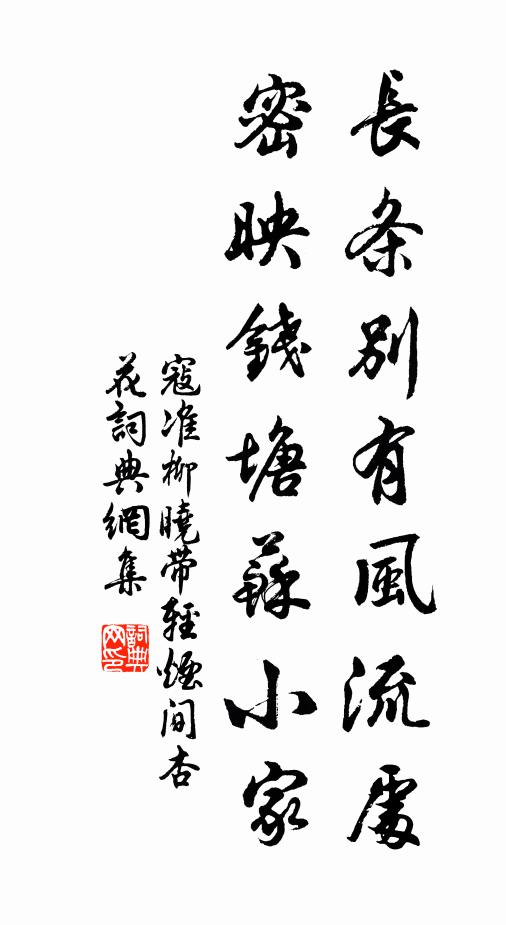 長条別有風流處
密映錢塘蘇小家
寇准柳曉帶輕煙间杏
花詞典網集
詞典网印